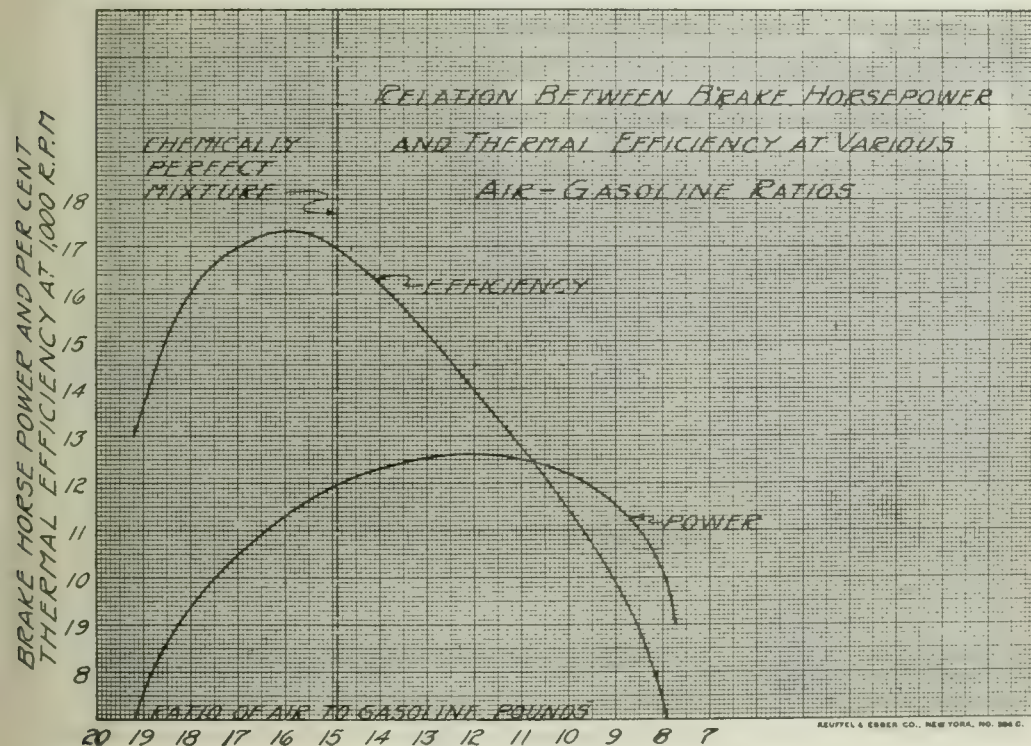 RELATION BETWEEN BRAKE HORSEPOWER
AND THERMAL EFFICIENCY AT VARIOUS
AIR-GASOLINE RATIOS
CHEMICALLY
PERFECT
MIXTURE
EFFICIENCY
POWER
BRAKE HORSE POWER AND PER CENT
THERMAL EFFICIENCY AT 1,000 R.P.M
18
17
16
15
14
13
12
11
10
19
8
RATIO OF AIR TO GASOLINE POUNDS
20 19 18 17 16 15 14 13 12 11 10 9 8 7
KEUFFEL & ESSER CO., NEW YORK, NO.